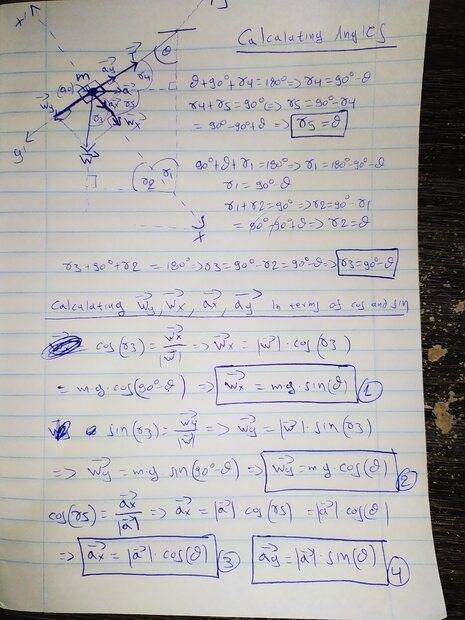 Calculating Angles
x'
θ
T
ay
m
r4
a
r5
ax
wy
r3
wx
y'
w
r2 r1
x
ϑ+90°+r4=180°=>r4=90°-ϑ
r4+r5=90°=>r5=90°-r4
=90°-90°+ϑ => r5=ϑ
90°+ϑ+r1=180°=>r1=180°-90°-ϑ
r1=90°-ϑ
r1+r2=90°=>r2=90°-r1
=90°-90°+ϑ=>r2=ϑ
r3+90°+r2 =180°=>r3=90°-r2=90°-ϑ=>r3=90°-ϑ
Calculating wy, wx, ax, ay In terms of cos and sin
cos(r3)=wx/|w| => wx=|w|·cos(r3)
=m·g·cos(90°-ϑ) => wx=m·g·sin(ϑ) 1
sin(r3)=wy/|w| => wy=|w|·sin(r3)
=> wy=m·g sin(90°-ϑ) => wy=m·g cos(ϑ) 2
cos(r5)=ax/|a| => ax=|a| cos(r5) =|a|·cos(ϑ)
=> ax=|a|·cos(ϑ) 3 ay=|a|·sin(ϑ) 4